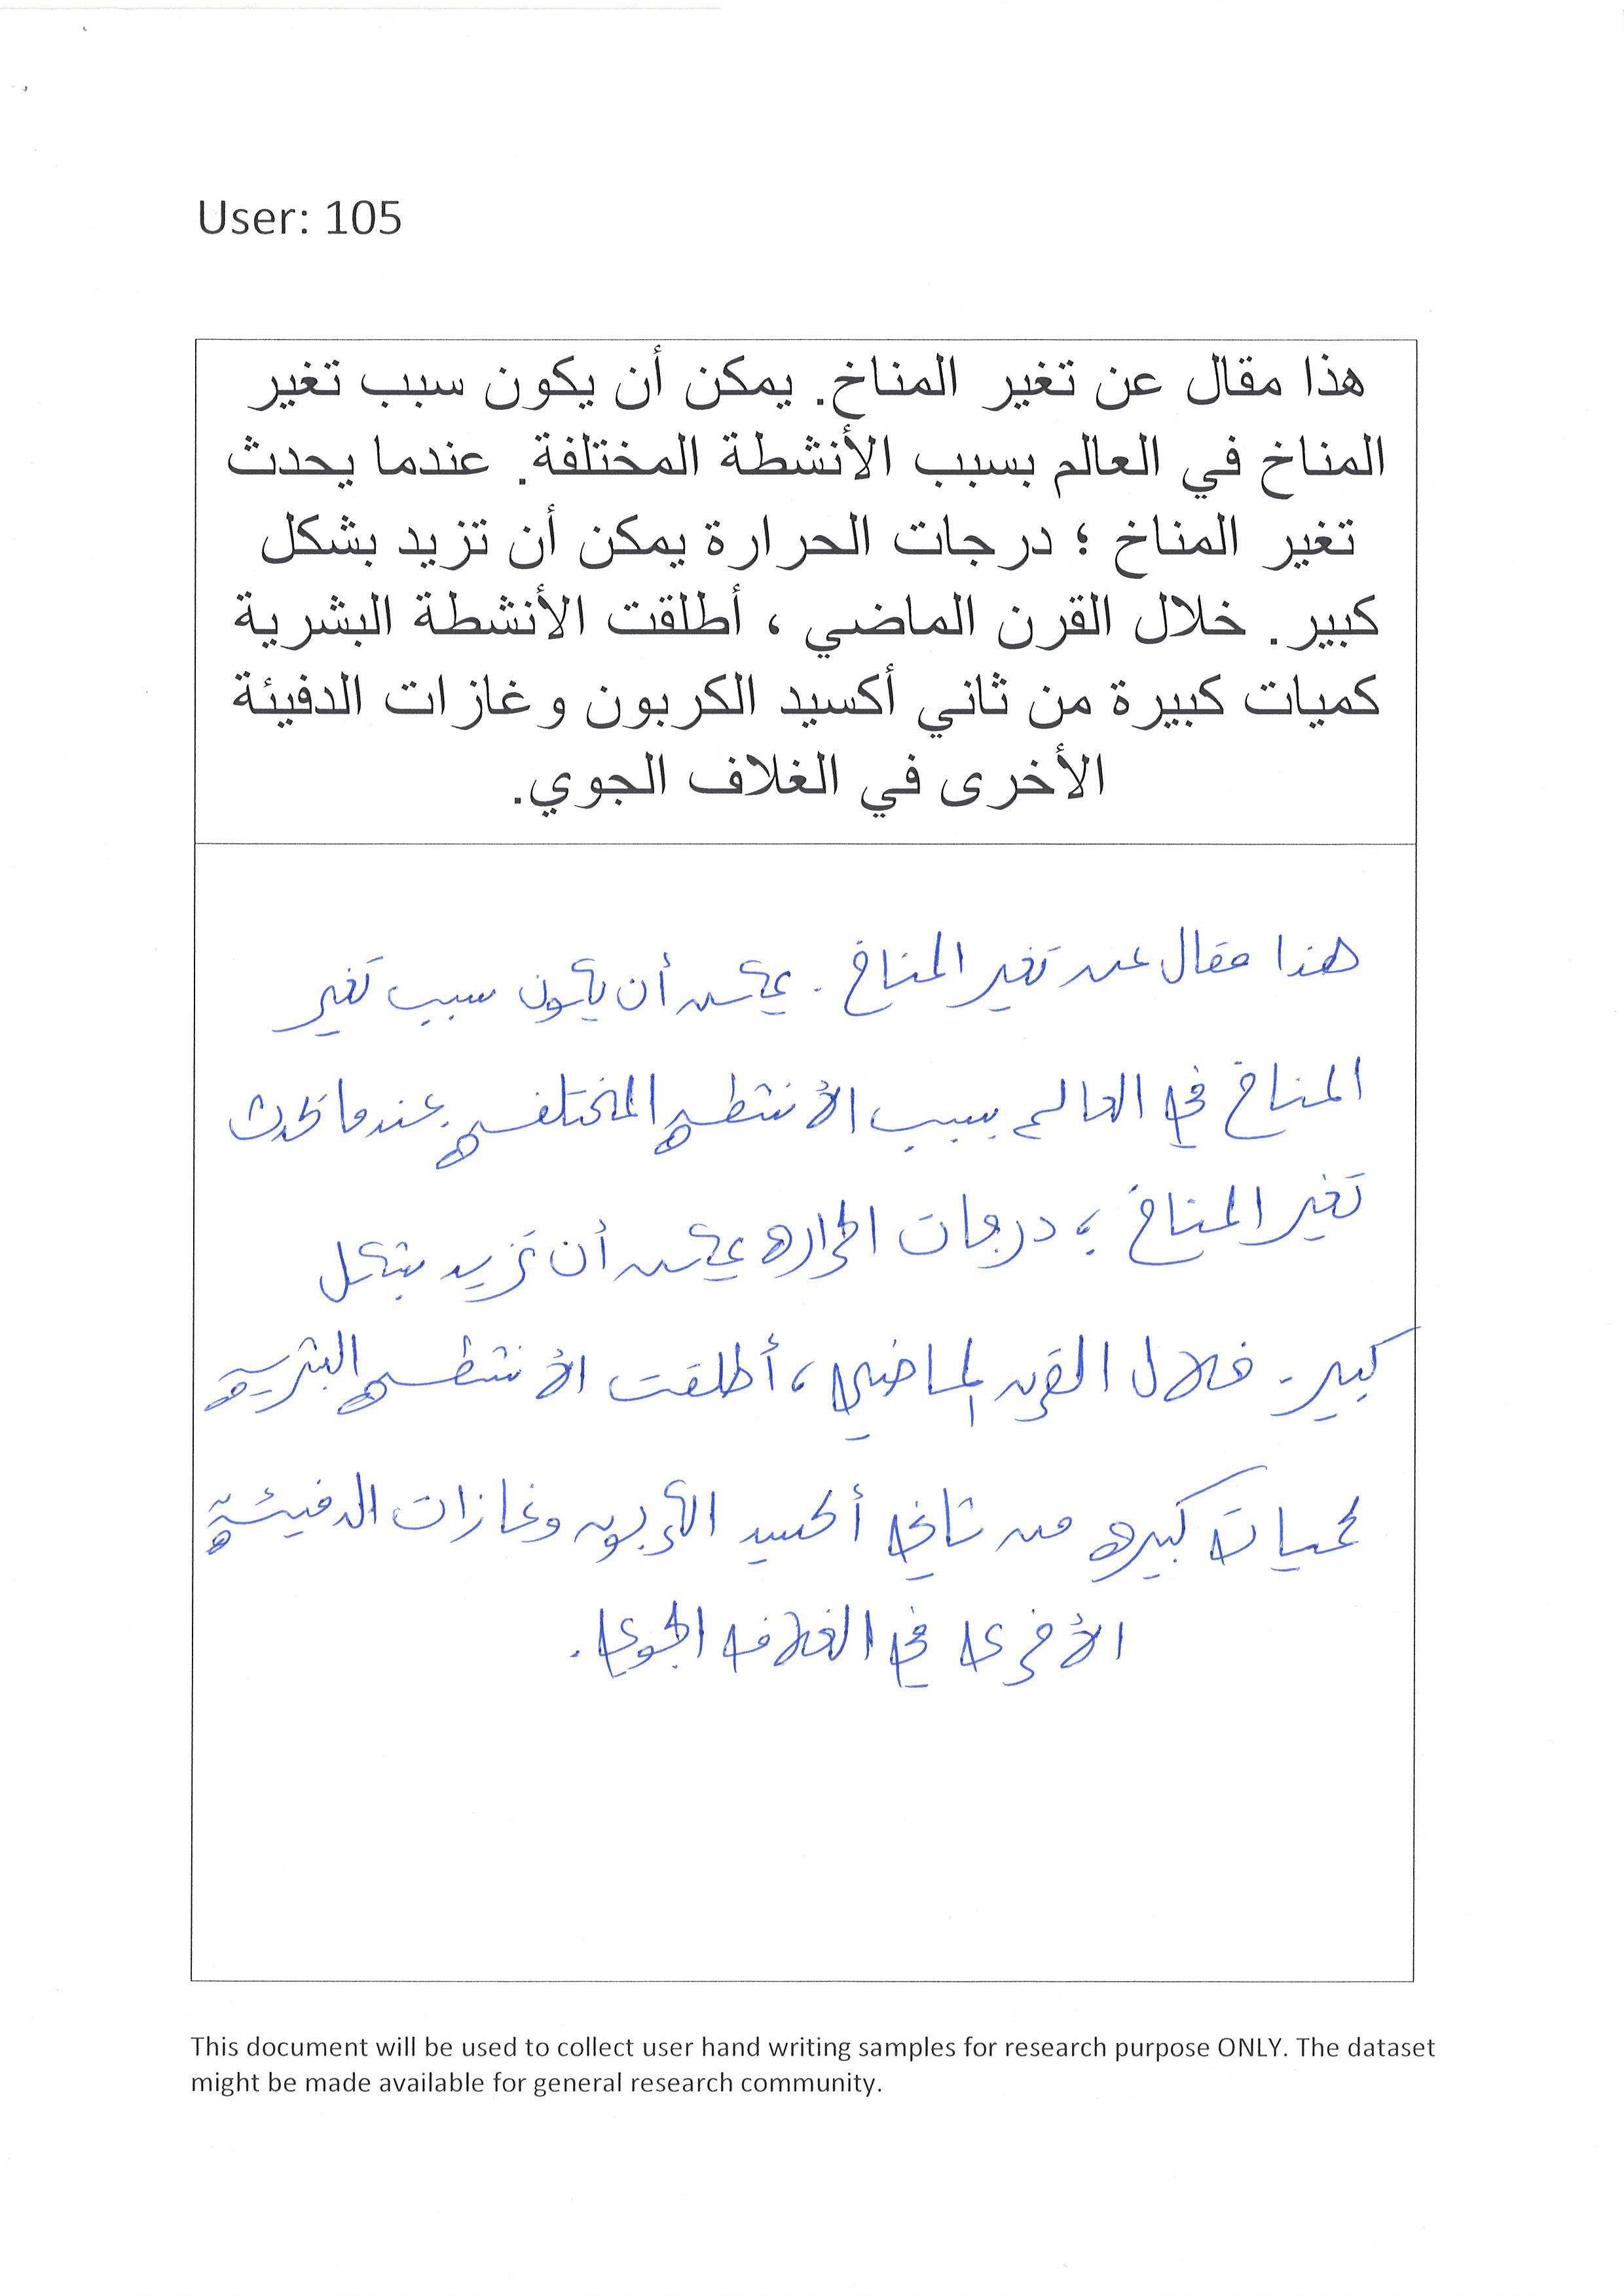 User: 105
هذا مقال عن تغير المناخ. يمكن أن يكون سبب تغير
المناخ في العالم بسبب الأنشطة المختلفة. عندما يحدث
تغير المناخ ؛ درجات الحرارة يمكن أن تزيد بشكل
كبير. خلال القرن الماضي ، أطلقت الأنشطة البشرية
كميات كبيرة من ثاني أكسيد الكربون وغازات الدفيئة
الأخرى في الغلاف الجوي.
هذا مقال عن تغير المناخ. يمكن أن يكون سبب تغير
المناخ في العالم بسبب الأنشطه المختلفه. عندما يحدث
تغير المناخ ؛ درجات الحراره يمكن أن تزيد بشكل
كبير. خلال القرن الماضي ، أطلقت الأنشطه البشريه
كميات كبيره من ثاني أكسيد الكربون وغازات الدفيئة
الأخرى في الغلاف الجوي.
This document will be used to collect user hand writing samples for research purpose ONLY. The dataset
might be made available for general research community.